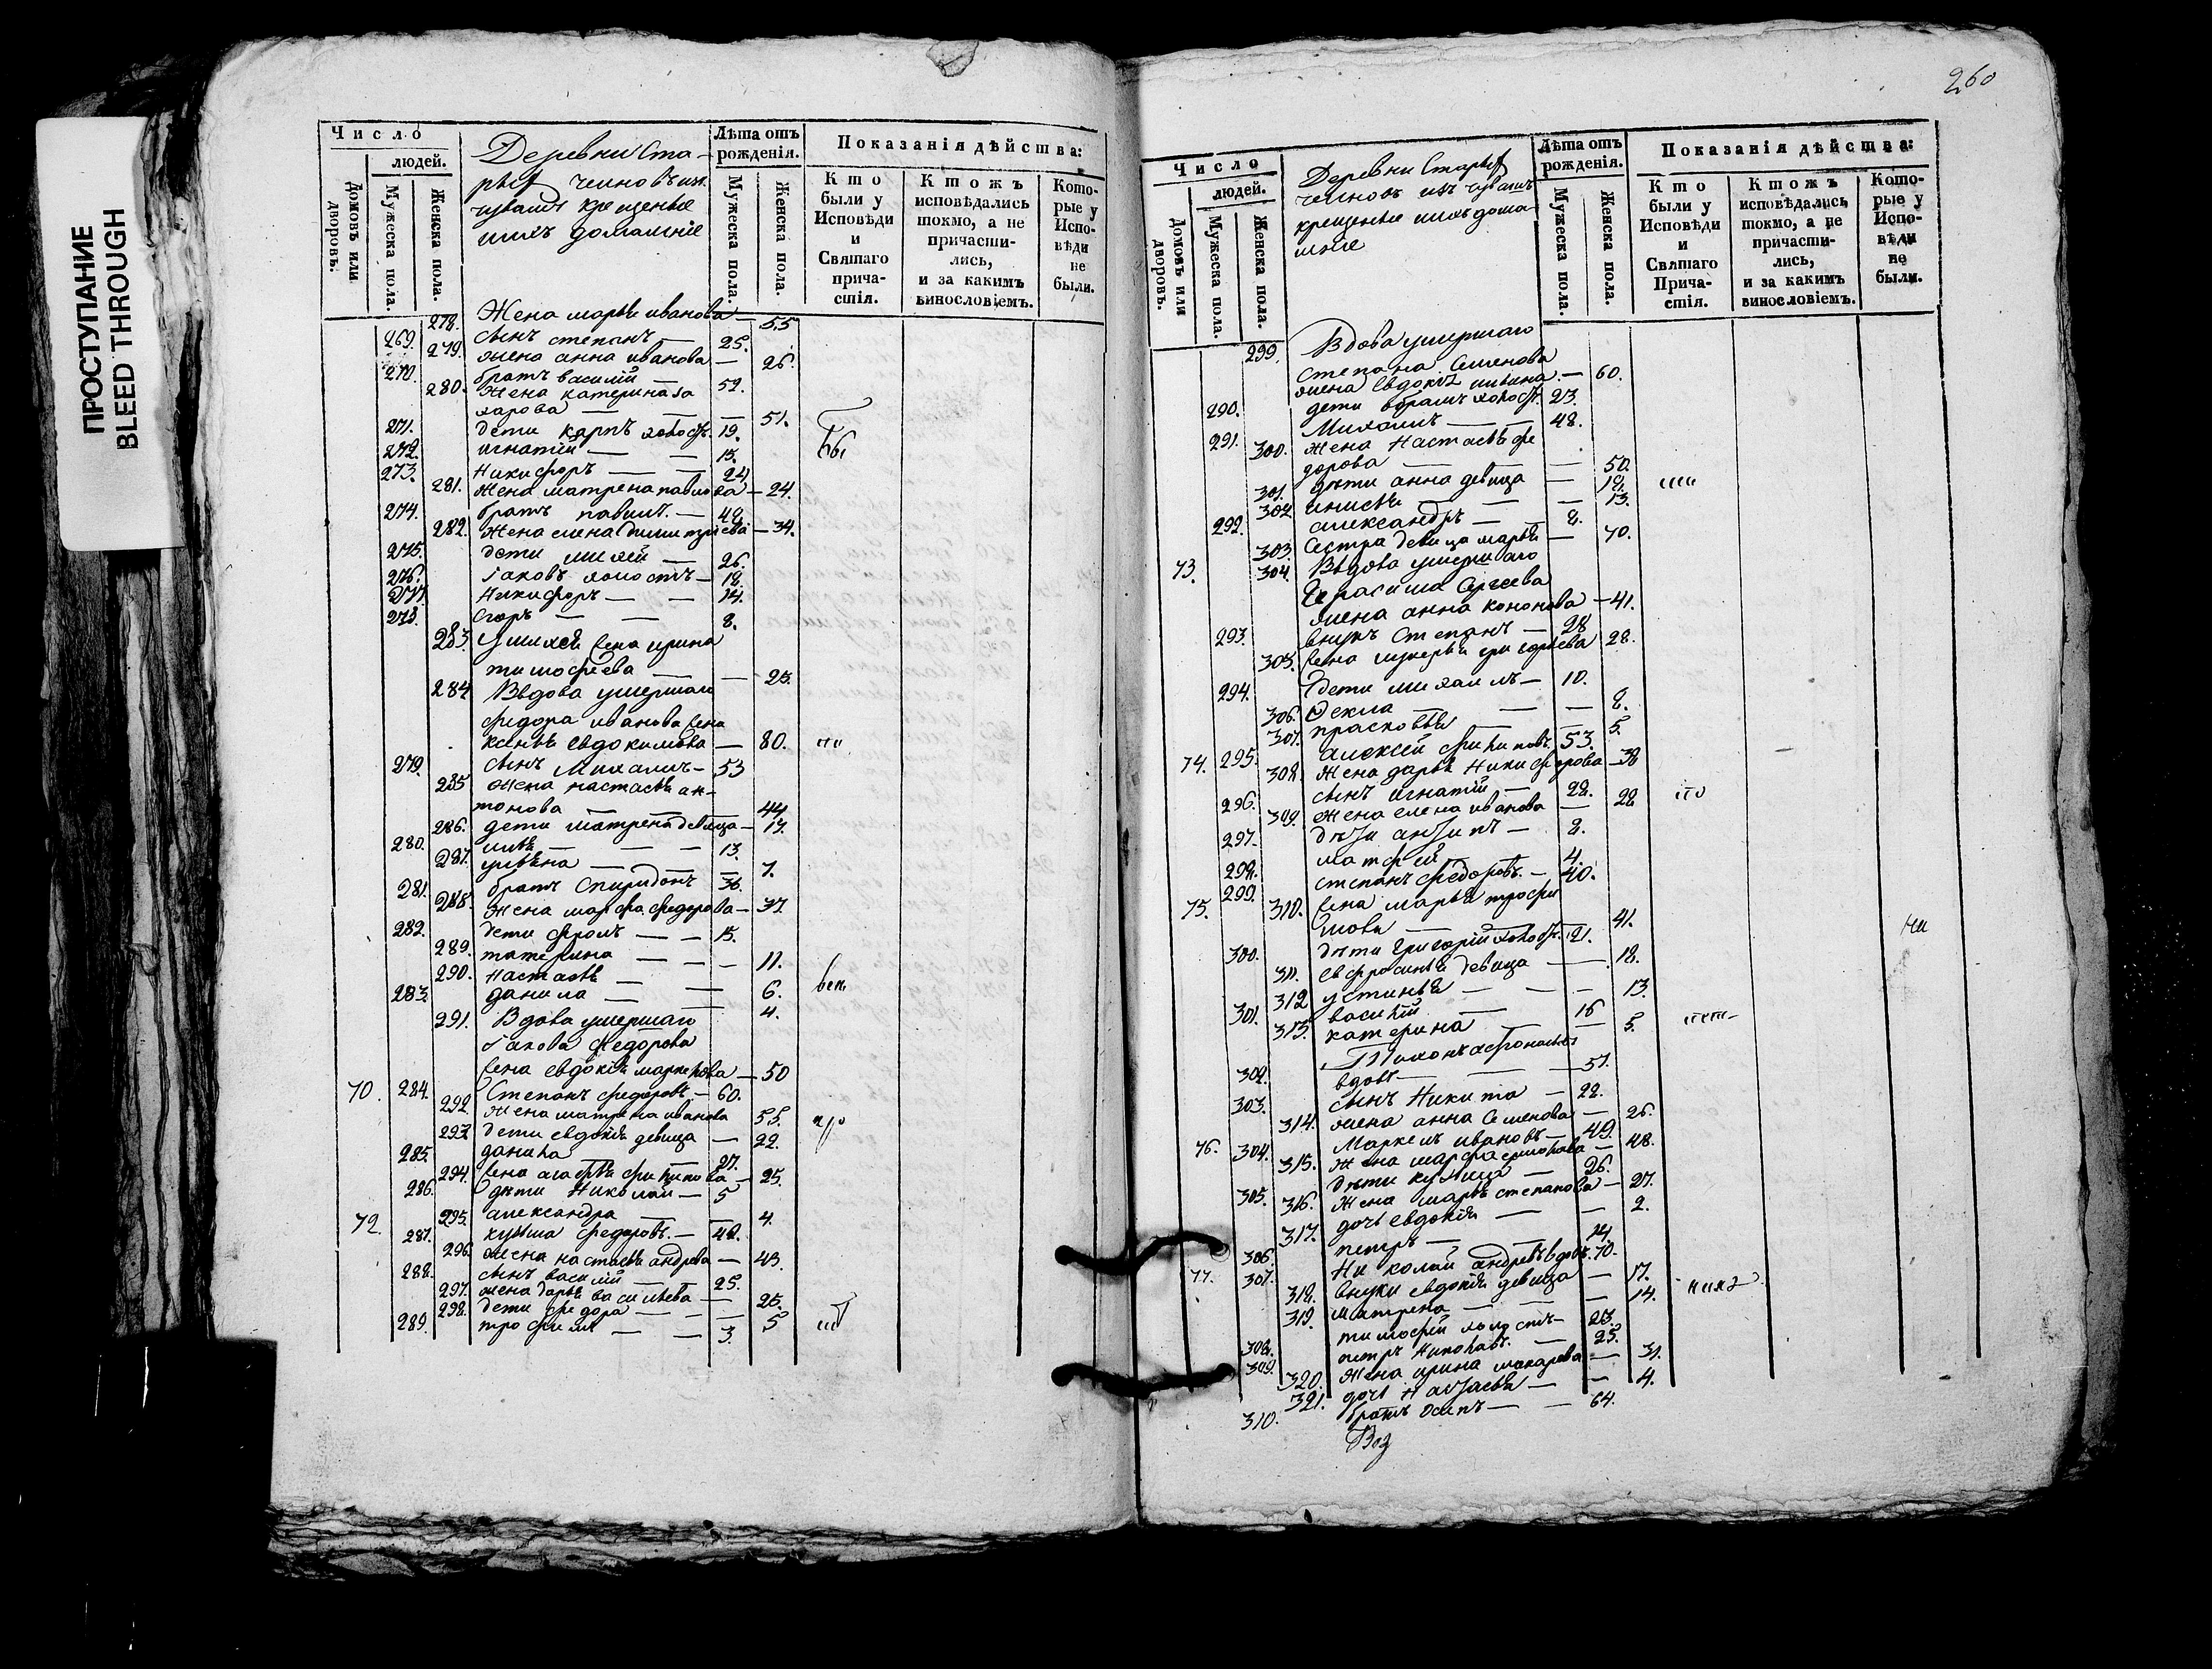 ПРОСТУПАНИЕ
BLEED THROUGH
260
Число
людей.
Домовъ или дворовъ.
Мужеска пола.
Женска пола.
Деревни Ста-
рыхъ чиновъ изъ
чувашъ крещеные
ихъ домашніе
Лѣта отъ рожденія.
Мужеска пола.
Женска пола.
Показанія дѣйства:
Кто были у Исповѣди и Святаго причастія.
Ктожъ исповѣдались токмо, а не причастились, и за какимъ винословіемъ.
Которые у Исповѣди не были.
278. Жена марья иванова — 55
269. сынъ степанъ — 25.
279. жена анна иванова — 26.
270. братъ василій — 52.
280. Жена катерина за
харова — 51.
271. дети карпъ холостъ. 19.
272. игнатій — 15.
273. Никифоръ — 24
281. жена матрена павлова — 24.
274. братъ павилъ. — 48.
282. жена елена димитріева — 34.
275. дети михей — 26.
276. Іаковъ холостъ — 18.
277. Никифоръ — 14.
278. Егоръ — 8.
283. У михея жена ирина
тимофеева — 25.
284 Вдова умершаго
федора иванова жена
евдокимова — 80.
279. сынъ Михаилъ — 53
285 жена настасья ан-
тонова — 44
286. дети матрена девица — 17.
280. илья — 13.
287. ульяна — 7.
281. братъ Спиридонъ 36.
288. жена марфа федорова — 37.
282. дети фролъ — 15.
289. катерина — 11.
290. настасья — 6.
283. данила — 4.
291. Вдова умершаго
Іакова Федорова
жена евдокія маркелова — 50
70. 284. Степанъ федоровъ. — 60.
292 жена матрена иванова 55.
293 дети евдокія девица — 22.
285. данила — 27.
294. жена агафья филипова — 25.
286. дѣти Николай — 5
295. александра — 4.
72. 287. кузма федоровъ. — 48.
296. жена настасья андреева — 43.
288. сынъ василій — 25.
297. жена дарья васильева — 25.
298. дети федора — 5
289. трофимъ — 3.
Число
людей.
Домовъ или дворовъ.
Мужеска пола.
Женска пола.
Деревни Старыхъ
чиновъ изъ чувашъ
крещеные ихъ дома
шніе
Лѣта отъ рожденія.
Мужеска пола.
Женска пола.
Показанія дѣйства:
Кто были у Исповѣди и Святаго Причастія.
Ктожъ исповѣдались токмо, а не причастились, и за какимъ винословіемъ.
Которые у Исповѣди не были.
299. Вдова умершаго
степана Семенова
жена Евдокія — 60.
290. дети абрамъ холостъ. 23.
291. Михаилъ — 48.
300. жена Настасья фе
дорова — 50.
301. дѣти анна девица — 18.
302 анисья — 13.
292. александръ — 8.
303. Сестра девица марья — 70.
73. 304. Вдова умершаго
Герасима Сергеева
жена анна кононова — 41.
293. внукъ Степанъ — 28
305. жена лукерья григорьева 28.
294. Дети михаилъ — 10.
306. Фекла — 8.
307. прасковья — 5.
74. 295. алексей филиповъ. 53.
308. жена дарья Никифорова — 38
296. сынъ игнатій — 28.
309. жена елена иванова — 28
297. дѣти антипъ — 8.
298. матфей — 4.
75. 299. степанъ федоровъ. — 40.
310. жена марья трофи
мова — 41.
300. дѣти Григорій холостъ. 21.
311. евфросинья девица — 18.
312 устинья — 13.
301. василій — 16
313. катерина — 5.
302. Тихонъ афонасьевъ
вдовъ — 57.
303. сынъ Никита — 28.
314. жена анна Семенова — 26.
76. 304. Маркелъ ивановъ — 49.
315. жена марфа — 48.
305. дѣти кузма — 26.
316. жена марья степанова — 27.
317. дочь евдокія — 2.
306. петръ — 14.
77. 307. Николай андреевъ вдовъ. 70.
318. внуки евдокія девица — 17.
319. матрена — 14.
308. тимофей холостъ — 23.
309. петръ Николаевъ. — 25.
320. жена ирина макарова — 31.
321. дочь Настасья — 4.
310. братъ Осипъ — 64.